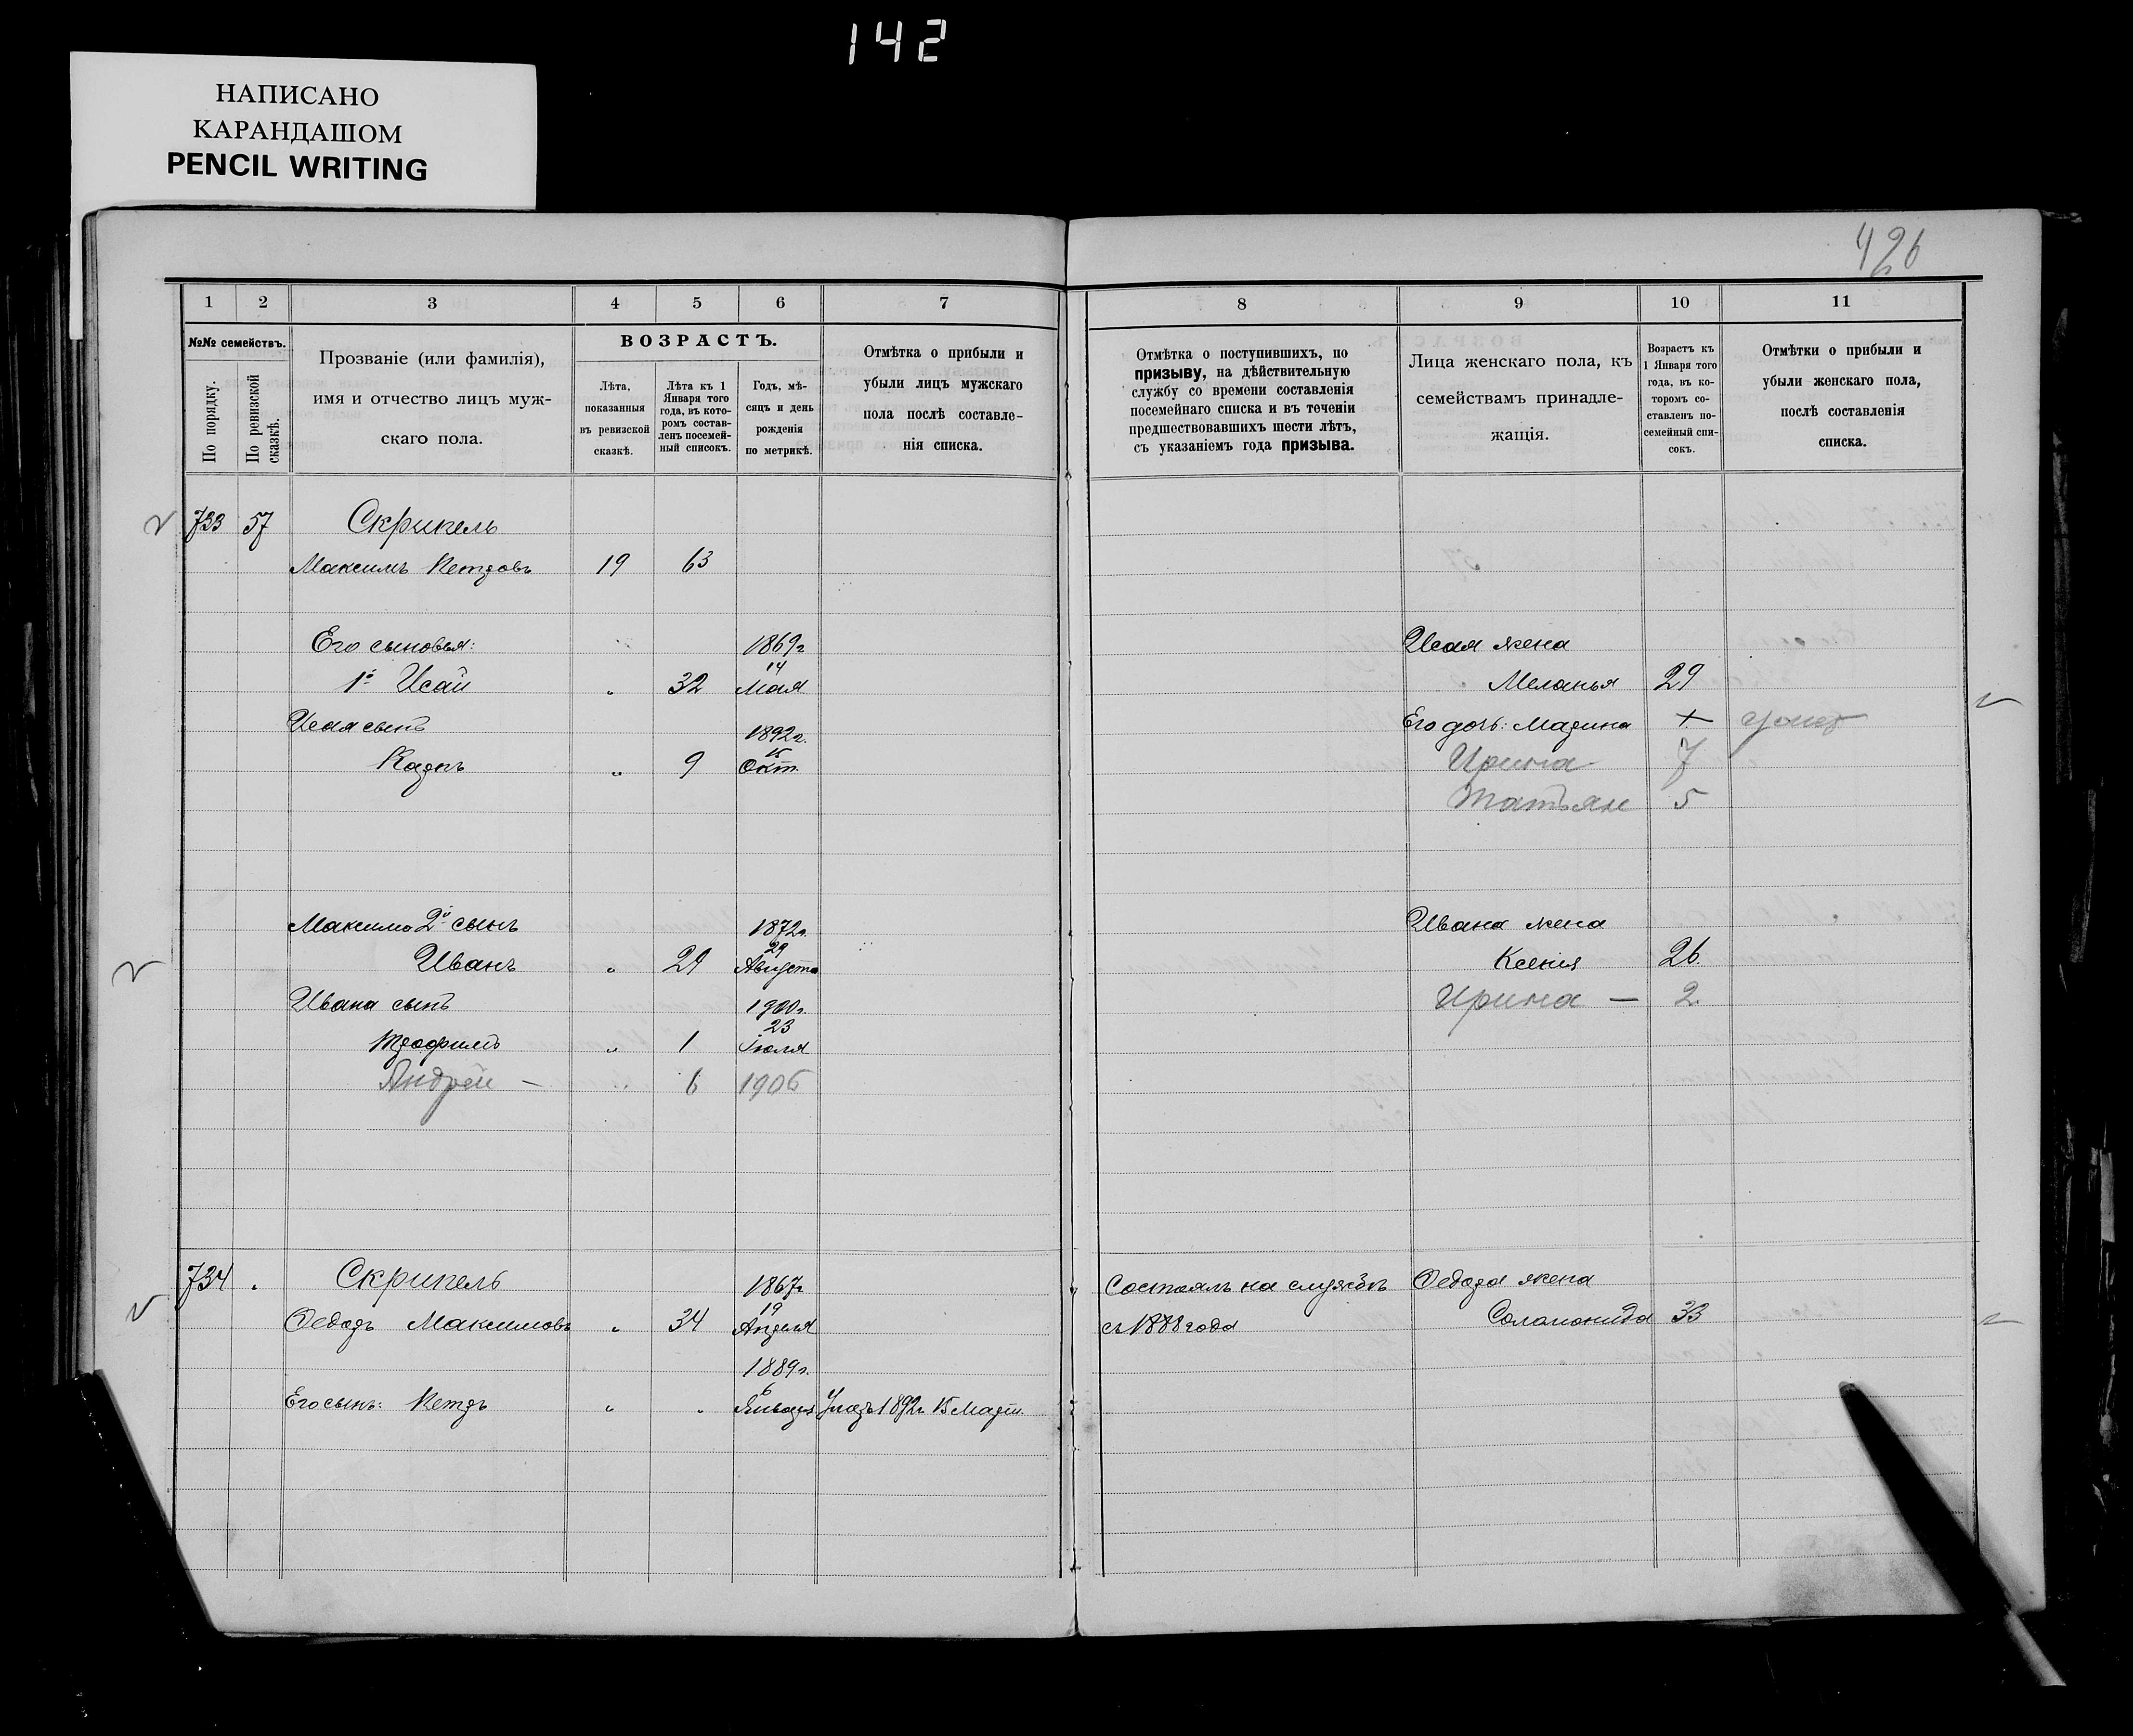 142
НАПИСАНО
КАРАНДАШОМ
PENCIL WRITING
426
1 2 3 4 5 6 7 8 9 10 11
№№ семействъ.
По порядку.
По ревизской сказкѣ.
Прозваніе (или фамилія),
имя и отчество лицъ муж-
скаго пола.
ВОЗРАСТЪ.
Лѣта,
показанныя
въ ревизской
сказкѣ.
Лѣта къ 1
Января того
года, въ кото-
ромъ состав-
ленъ посемей-
ный список.
Годъ, мѣ-
сяцъ и день
рожденія
по метрикѣ.
Отмѣтка о прибыли и
убыли лицъ мужскаго
пола послѣ составле-
нія списка.
Отмѣтка о поступившихъ, по
призыву, на дѣйствительную
службу со времени составленія
посемейнаго списка и въ теченіи
предшествовавшихъ шести лѣтъ,
съ указаніемъ года призыва.
Лица женскаго пола, къ
семействамъ принадле-
жащія.
Возрастъ къ
1 Января того
года, въ ко-
торомъ со-
ставленъ по-
семейный спи-
сокъ.
Отмѣтки о прибыли и
убыли женскаго пола,
послѣ составленія
списка.
733 57 Скрипель
Максимъ Петровъ 19 63
Его сыновья: 1869г Исая жена
1й Исай " 32 14 Мая Меланья 29
Исая сынъ 1892г. Его дочь: Марина +
Карпъ " 9 15 Окт. Ирина 7
Татьян 5
Максима 2й сынъ 1872г. Ивана жена
Иванъ " 29 29 Августа Ксенія 26.
Ивана сынъ 1900г. Ирина — 2
Трофимъ " 1 23 Іюля
Андрей — 6 1906
734 " Скрипель 1867г Состоялъ на службѣ Ѳедора жена
Ѳедоръ Максимовъ " 34 19 Апреля съ 1888 года Соломонида 33
1889г.
Его сынъ: Петръ " " 6 Января Умеръ 1892г. 15 Марта